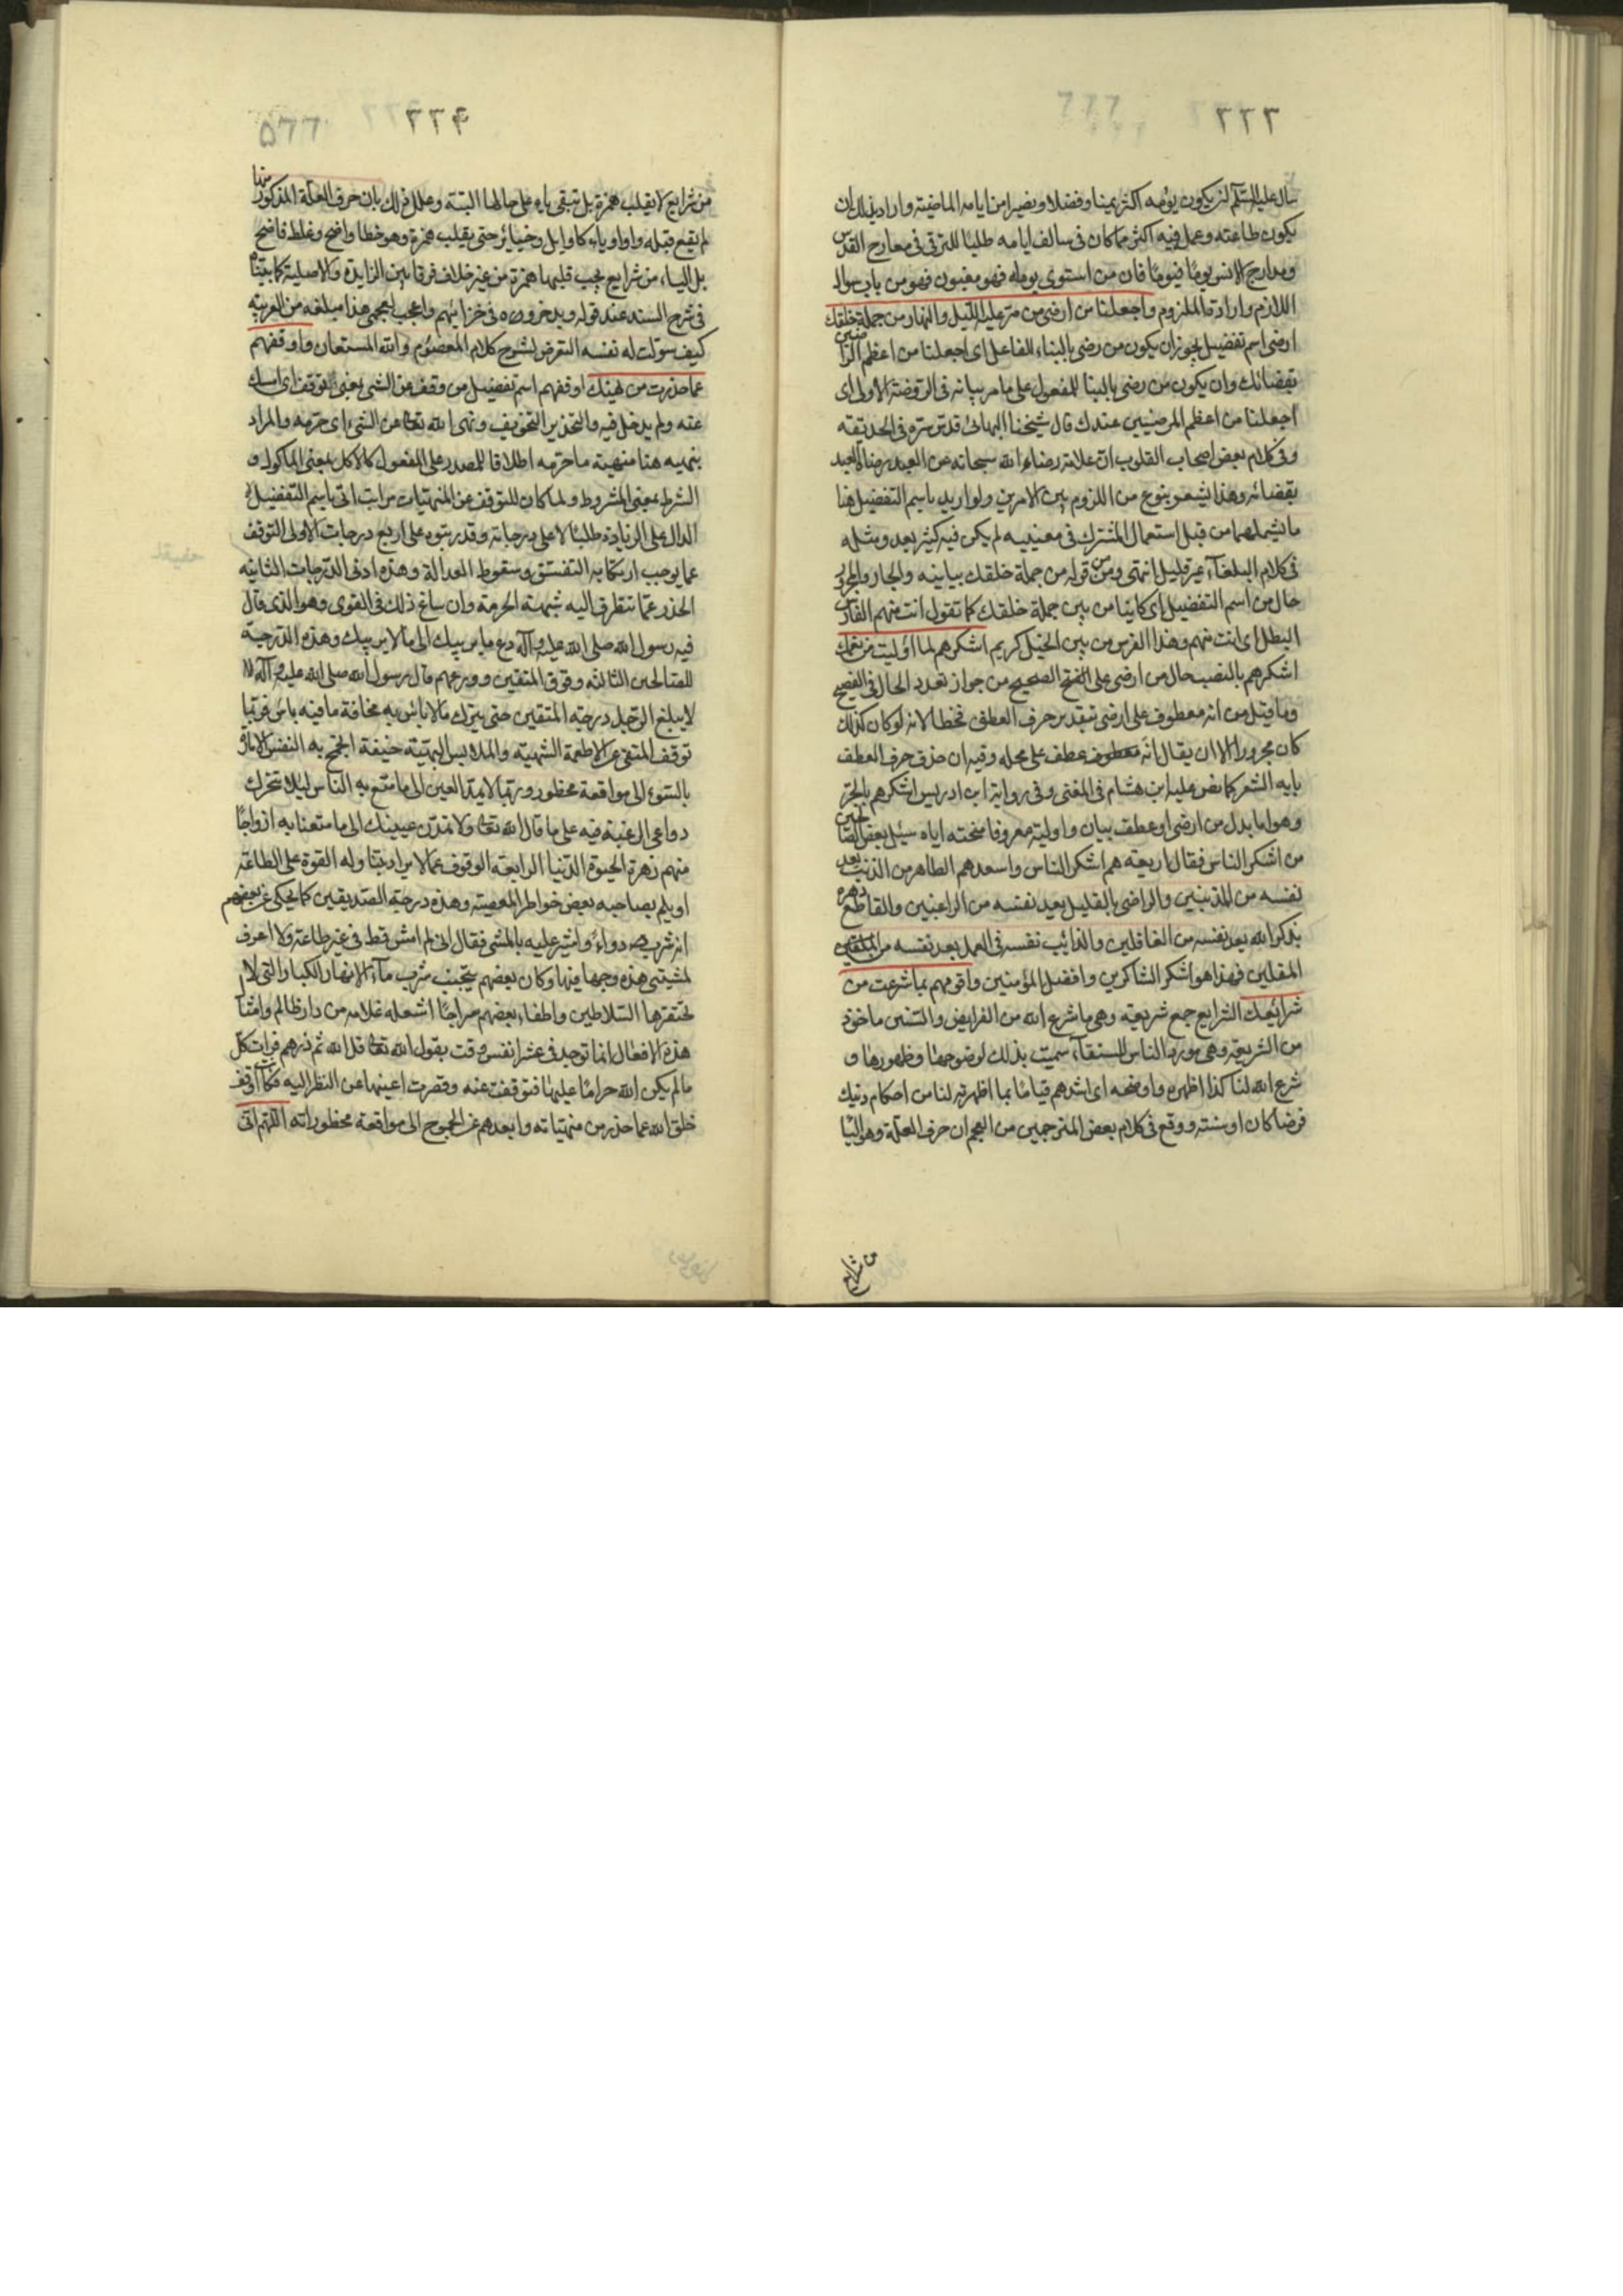 ٢٢٣
سال عليه السلم ان يكون يومه اكثر يمنا وفضلا وخيرا من ايامه الماضية واراد بذلك ان
يكون طاعته وعمله فيه اكثر مما كان فى سالف ايامه طلبًا للترقى فى معارج القدس
ومدارج الانس يومًا فيومًا فان من استوى يوماه فهو مغبون فهو من باب سوال
اللازم وارادة الملزوم واجعلنا من ارضى من مرّ عليه الليل والنهار من جملة خلقك
ارضى اسم تفضيل يجوز ان يكون من رضى بالبناء للفاعل اى اجعلنا من اعظم الراضين
بقضائك وان يكون من رضى بالبنا للمفعول على ما مر بيانه فى الروضة الاولى اى
اجعلنا من اعظم المرضيين عندك قال شيخنا البهائى قدس سره فى الحديقة
وفى كلام بعض اصحاب القلوب انّ علامة رضاء الله سبحانه عن العبد رضا العبد
بقضائه وهذا يشعر بنوع من اللزوم بين الامرين ولو اريد باسم التفضيل هنا
ما يشملهما من قبيل استعمال المشترك فى معنييه لم يكن فيه كثير بعد ومثله
فى كلام البلغآء غير قليل انتهى ومن قوله من جملة خلقك بيانيه والجار والمجرور
حال من اسم التفضيل اى كاينا من بين جملة خلقك كما تقول انت منهم الفارس
البطل اى انت منهم وهذا الفرس من بين الخيل كريم اشكرهم لما اوليت من نعمك
اشكرهم بالنصب حال من ارضى على الصحيح من جواز تعدد الحال فى الفصيح
وما قيل من انه معطوف على ارضى بتقدير حرف العطف فخطا لانه لو كان كذلك
كان مجرورا الا ان يقال انّه معطوف عطف على محله وفيه ان حذف حرف العطف
بابه الشعر كما نص عليه ابن هشام فى المغنى وفى رواية ابن ادريس اشكرهم بالجر
وهو اما بدل من ارضى او عطف بيان واوليته معروفا منحته اياه سئل بعض الصالحين
من اشكر الناس فقال اربعة هم اشكر الناس واسعدهم الطاهر من الذنب يعد
نفسه من المذنبين والراضى بالقليل يعد نفسه من الراغبين والقاطع دهره
بذكر الله يعد نفسه من الغافلين والدائب نفسه فى العمل يعد نفسه من
المقلين فهذا هو اشكر الشاكرين وافضل المؤمنين واقومهم بما شرعت من
شرائعك الشرايع جمع شريعة وهى ما شرع الله من الفرايض والسنن ماخوذ
من الشريعة وهى مورد الناس للاستقآء سميت بذلك لوضوحها وظهورها و
شرع الله لنا كذا اظهره واوضحه اى اشدهم قيامًا بما اظهرته لناس احكام دينك
فرضا كان او سنته ووقع فى كلام بعض المترجمين من العجم ان حرف العلة وهو اليا
من شرايع
٢٢۴
من شرايع لا يقلب همزة بل تبقى ياء على حالها البتة وعلل ذلك بان حرف العلة المذكور منها
لم يقع قبله واو او ياء كاوايل وخيائر حتى يقلب همزة وهو خطا واضح وغلط فاضح
بل الياء من شرايع يجب قلبها همزة من غير خلاف فرقا بين الزايدة والاصلية كما بيّنّاه
فى شرح السند عند قوله ويدخرونه فى خزائنهم واعجب لعجمى هذا مبلغه من العربية
كيف سولت له نفسه التعرض لشرح كلام المعصوم والله المستعان واوقفهم
عما حذرت من نهيك اوقفهم اسم تفضيل من وقف عن الشى بمعنى توقف اى امسك
عنه ولم يدخل فيه والتحذير التخويف ونهى الله تعالى عن الشىء اى حرمه والمراد
بنهيه هنا منهيّه ما حرّمه اطلاقا للمصدر على المفعول كالاكل بمعنى الماكول و
الشرط بمعنى المشروط ولما كان للتوقف عن المنهيّات مراتب اتى باسم التفضيل
الدال على الزيادة طلبًا لاعلى درجاته وقد رتبوه على اربع درجات الاولى التوقف
عما يوجب ارتكابه التفسّق وسقوط العدالة وهذه ادنى الدرجات الثانية
الحذر عمّا تتطرق اليه شبهة الحرمة وان ساغ ذلك فى الفتوى وهو الذى قال
فيه رسول الله صلى الله عليه وآله دع ما يريبك الى ما لا يريبك وهذه الدرجة
للصالحين الثالثة وقوف المتقين وورعهم قال رسول الله صلى الله عليه وآله
لا يبلغ الرجل درجة المتقين حتى يترك ما لا باس به مخافة ما فيه باس فربما
توقف المتقى عن الاطعمة الشهية والملابس البهيّة خيفة الجمح به النفس الامارة
بالسوء الى مواقعة محظور وربّما لا يمدّ العين الى ما متع به الناس ليلا تتحرك
دواعى الرغبة فيه على ما قال الله تعالى ولا تمدّن عينيك الى ما متعنا به ازواجًا
منهم زهرة الحيوة الدنيا الرابعة الوقوف عما لا يراد بتناوله القوة على الطاعة
او يلم بصاحبه بعض خواطر المعصية وهذه درجة الصديقين كما يحكى عن بعضهم
انه شرب دواءً واشير عليه بالمشى فقال انى لم امش قط فى غير طاعة ولا اعرف
لمشيتى هذه وجها فيها وكان بعضهم يتجنب شرب مآء الانهار الكبار التى
تحتفرها السلاطين واطفاء بعضهم سراجًا اشعله غلامه من دار ظالم وامثال
هذه الافعال انما توجد فى عشر انفس وقت بقول الله تعالى قل الله ثم ذرهم فرات كل
ما لم يكن الله حرامًا عليها فتوقفت عنه وقصرت اعينها عن النظر اليه فكانت اوقف
خلق الله عما حذر من منهيّاته وابعدهم عن الجموح الى مواقعة محظوراته اللهم انى